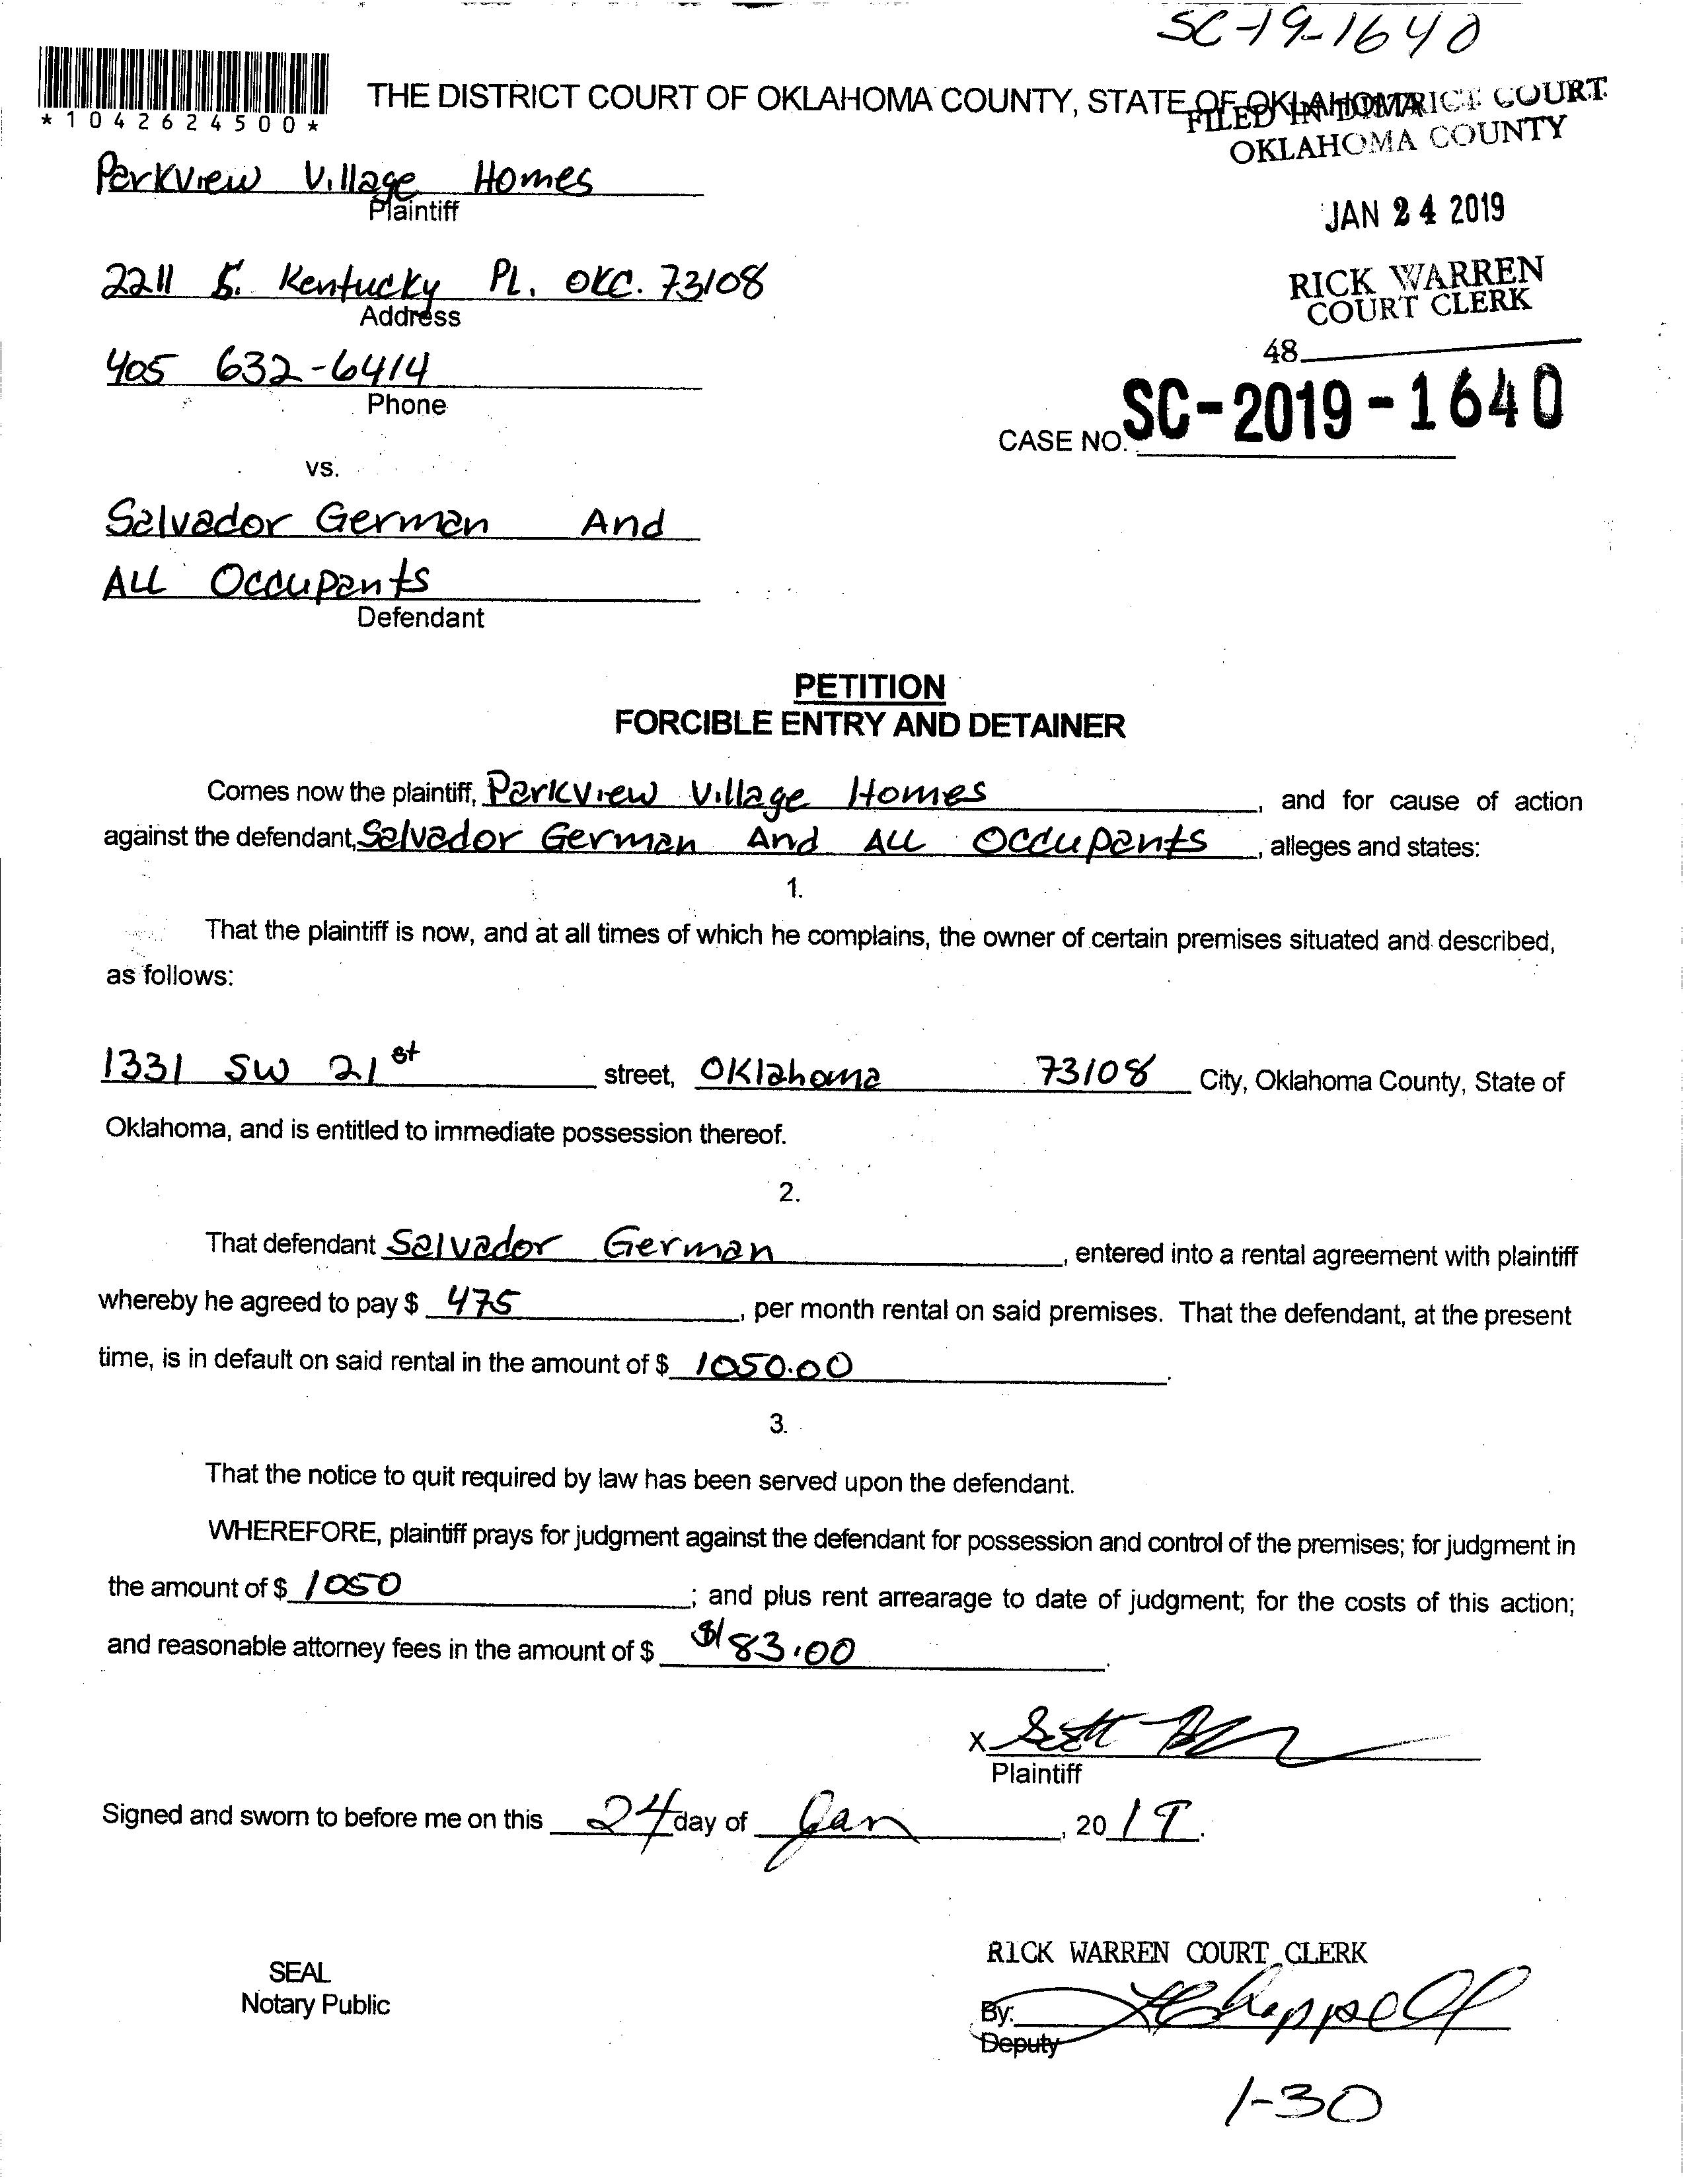 SC-19-1640
*1042624500*
THE DISTRICT COURT OF OKLAHOMA COUNTY, STATE OF OKLAHOMA
FILED IN DISTRICT COURT
OKLAHOMA COUNTY
Parkview Village Homes
Plaintiff
JAN 24 2019
2211 S. Kentucky PL. OKC. 73108
Address
RICK WARREN
COURT CLERK
405 632-6414
Phone
48
CASE NO. SC-2019-1640
vs.
Salvador German And
ALL Occupants
Defendant
PETITION
FORCIBLE ENTRY AND DETAINER
Comes now the plaintiff, Parkview Village Homes, and for cause of action
against the defendant, Salvador German And ALL Occupants, alleges and states:
1.
That the plaintiff is now, and at all times of which he complains, the owner of certain premises situated and described,
as follows:
1331 SW 21st street, Oklahoma 73108 City, Oklahoma County, State of
Oklahoma, and is entitled to immediate possession thereof.
2.
That defendant Salvador German, entered into a rental agreement with plaintiff
whereby he agreed to pay $ 475, per month rental on said premises. That the defendant, at the present
time, is in default on said rental in the amount of $ 1050.00.
3.
That the notice to quit required by law has been served upon the defendant.
WHEREFORE, plaintiff prays for judgment against the defendant for possession and control of the premises; for judgment in
the amount of $ 1050; and plus rent arrearage to date of judgment; for the costs of this action;
and reasonable attorney fees in the amount of $ $183.00.
X Scott
Plaintiff
Signed and sworn to before me on this 24 day of Jan, 2019.
RICK WARREN COURT CLERK
SEAL
Notary Public
By: Chappell
Deputy
1-30